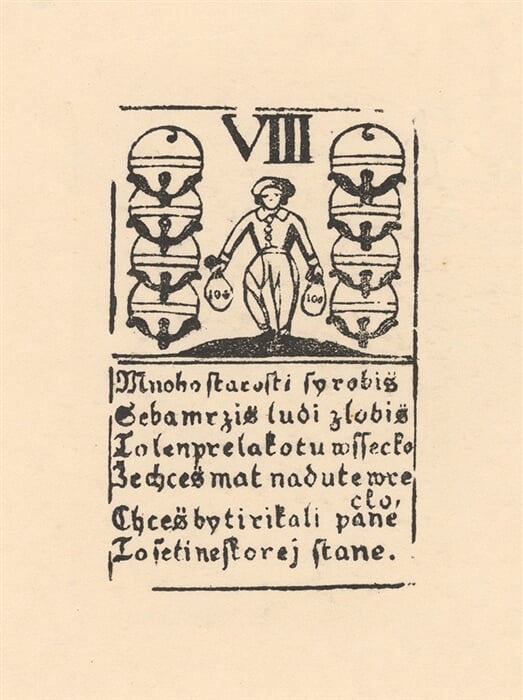 VIII
100 100
Mnoho starosti sy robis
Seba mrzis ludi zlobis
To len pre lakotu wssecko
Ze chces mat nadute wre
cko,
Chces by ti rikali pane
To se ti neskorej stane.